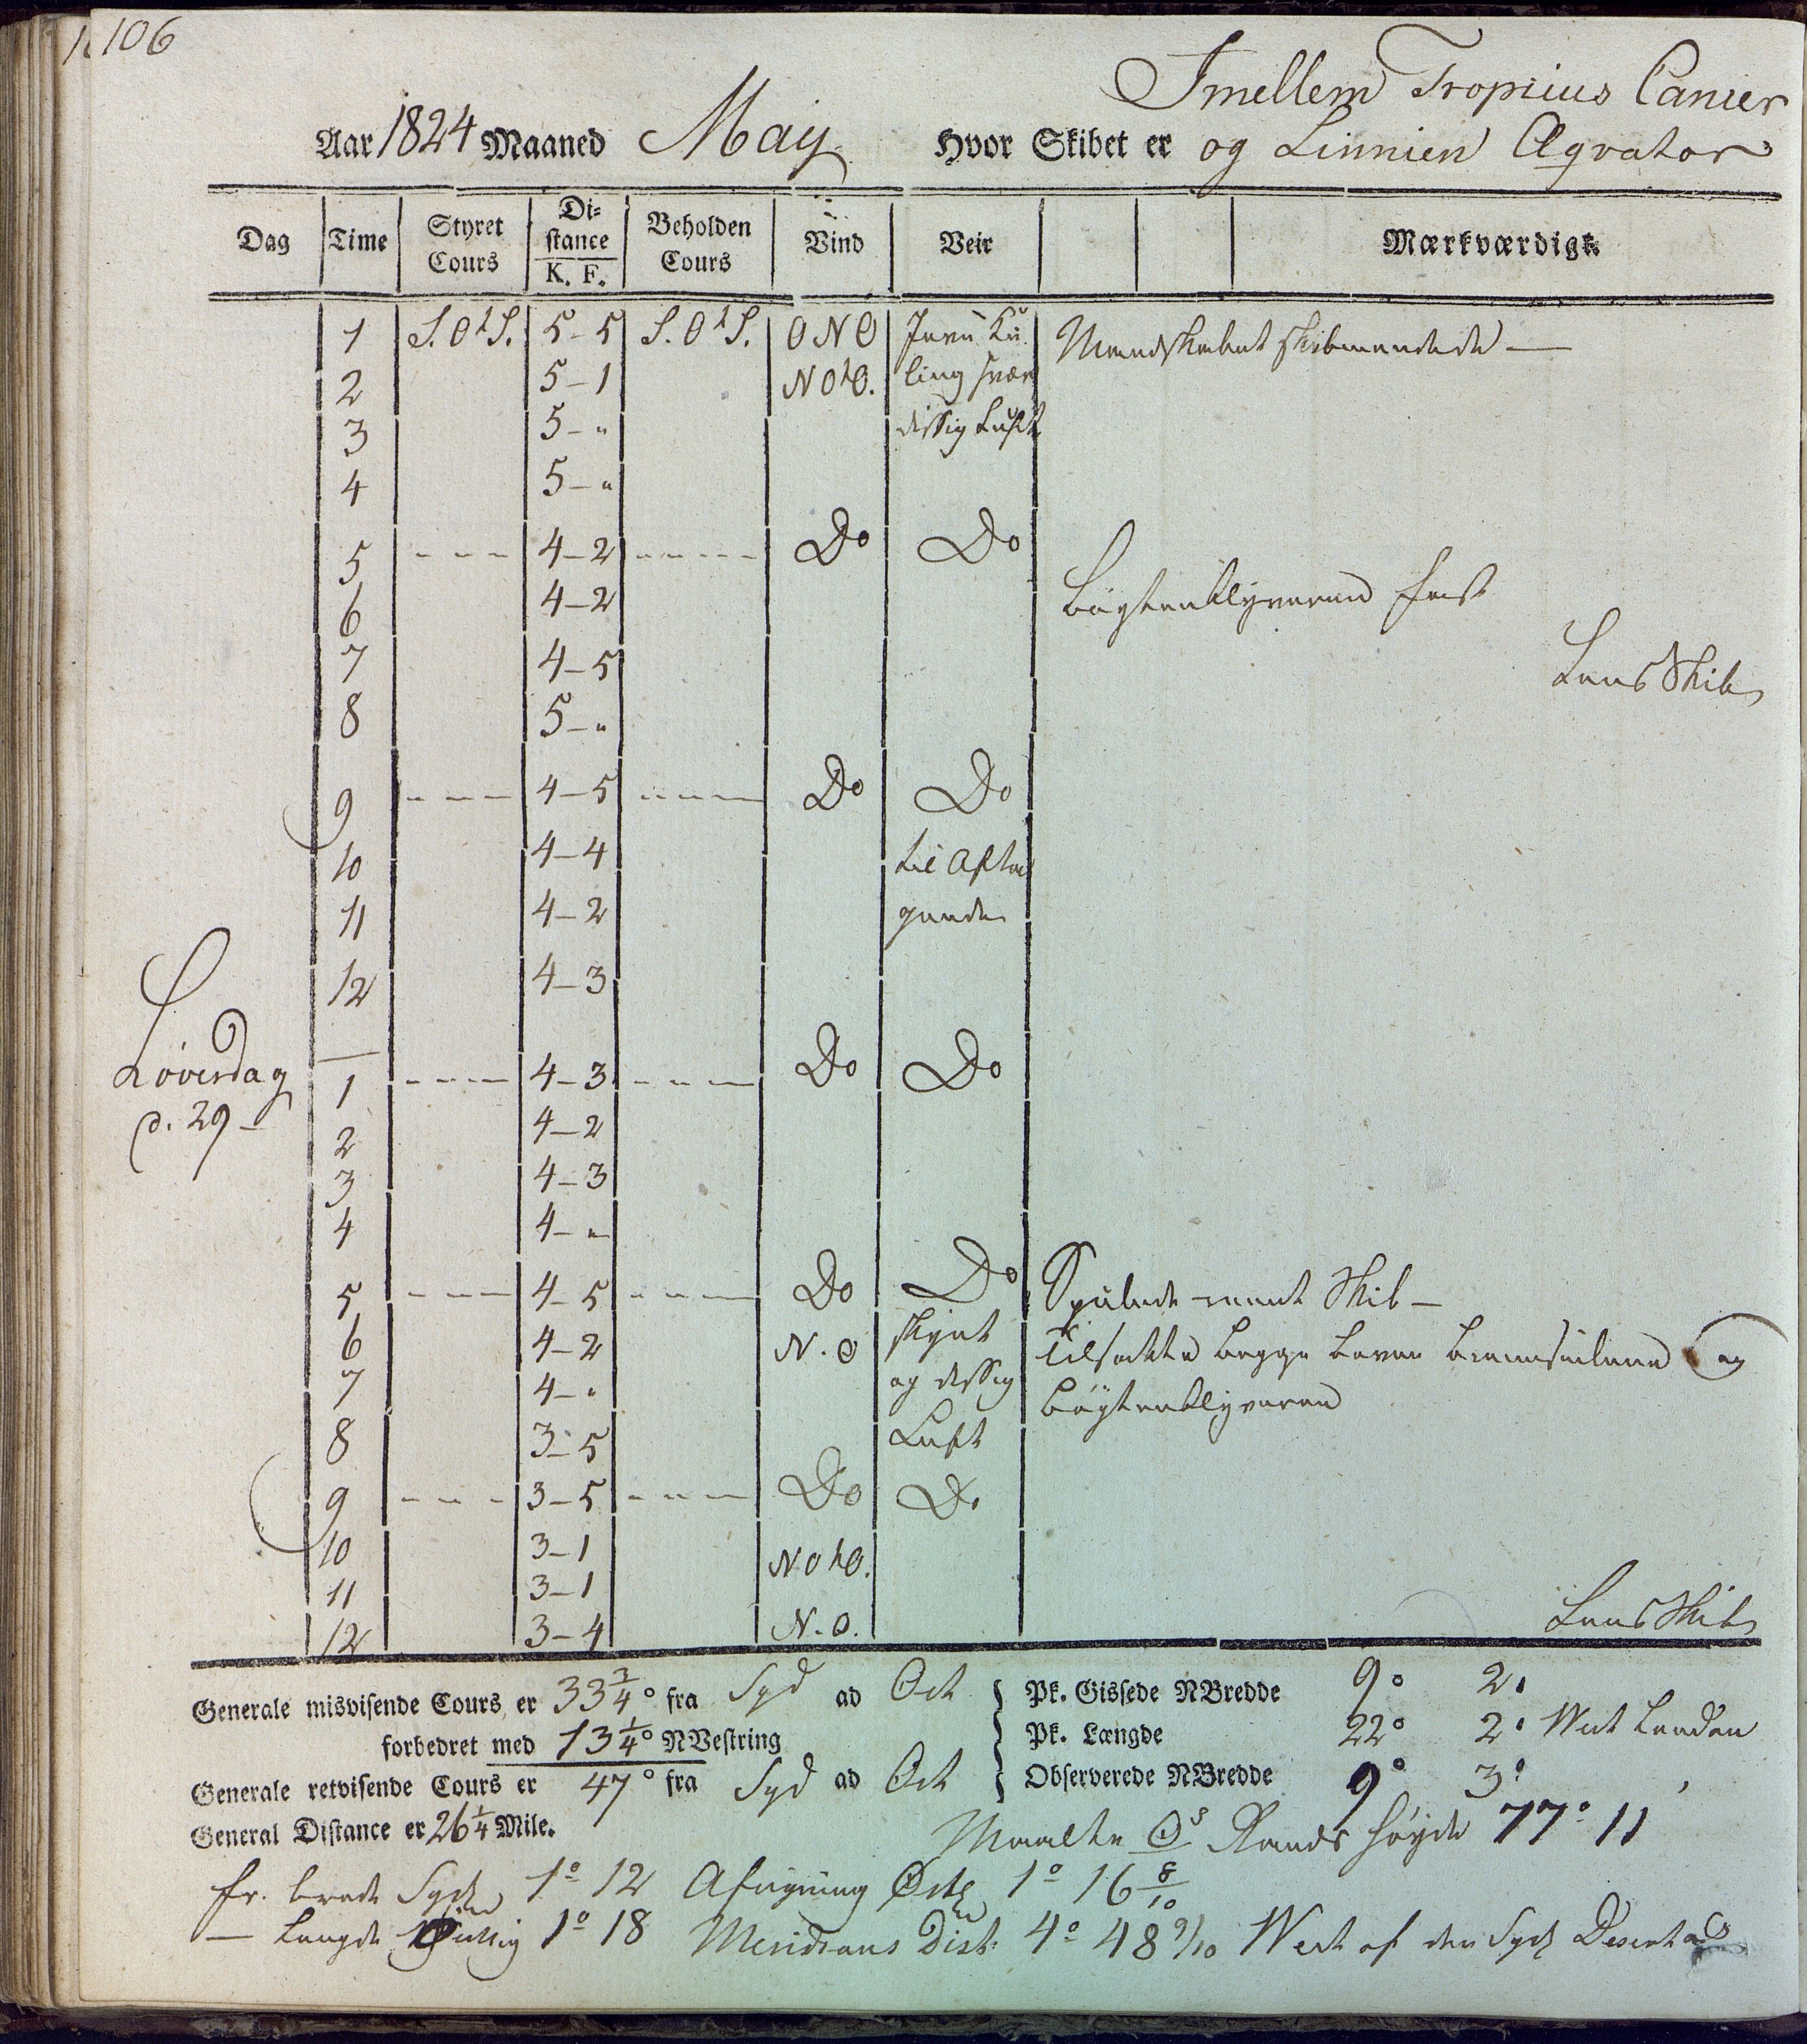 106
Imellem Tropicus Cancer
Aar 1824 Maaned May Hvor Skibet er og Linnien Æqvator
Dag Time Styret Cours Di=stance K. F. Beholden Cours Vind Veir Mærkværdigt.
1 S.OtS. 5-5 S.OtS. ONO Jevn Ku Mandskabet skibmandede —
2 5-1 NOtO. ling svær
3 5-" dissig Luft
4 5-"
5 ---- 4-2 ---- Do Do
6 4-2 Bøgtenklyveren fast
7 4-5 Lens Skib
8 5-"
9 ---- 4-5 ---- Do Do
10 4-4 til Afta
11 4-2 gende
12 4-3
Løverdag 1 ---- 4-3 ---- Do Do
d. 29- 2 4-2
3 4-3
4 4-"
5 ---- 4-5 ---- Do Do Spulede reent Skib -
6 4-2 N.O skyet Tilsatte begge Boven Bramseilene og
7 4-" og dissig Bøgtenklyveren
8 3-5 Luft
9 ---- 3-5 ---- Do Do
10 3-1 NOtO.
11 3-1
12 3-4 N.O. Lens Skib
Generale misvisende Cours, er 33 3/4° fra Syd ad Ost } Pk. Gissede NBredde 9° 2'
forbedret med 13 1/4° NVestring } Pk. Længde 22° 2' West London
Generale retvisende Cours er 47° fra Syd ad Ost } Observerede NBredde 9° 3'
General Distance er 26 1/4 Mile. Maalte Rands høyde 77° 11'
fr. brede Sydl 1° 12 Afvigning Østl 1° 16 8/10
— Længde 1° 18 Meridians Dist: 4° 48 9/10 West af den Sydl Desertas